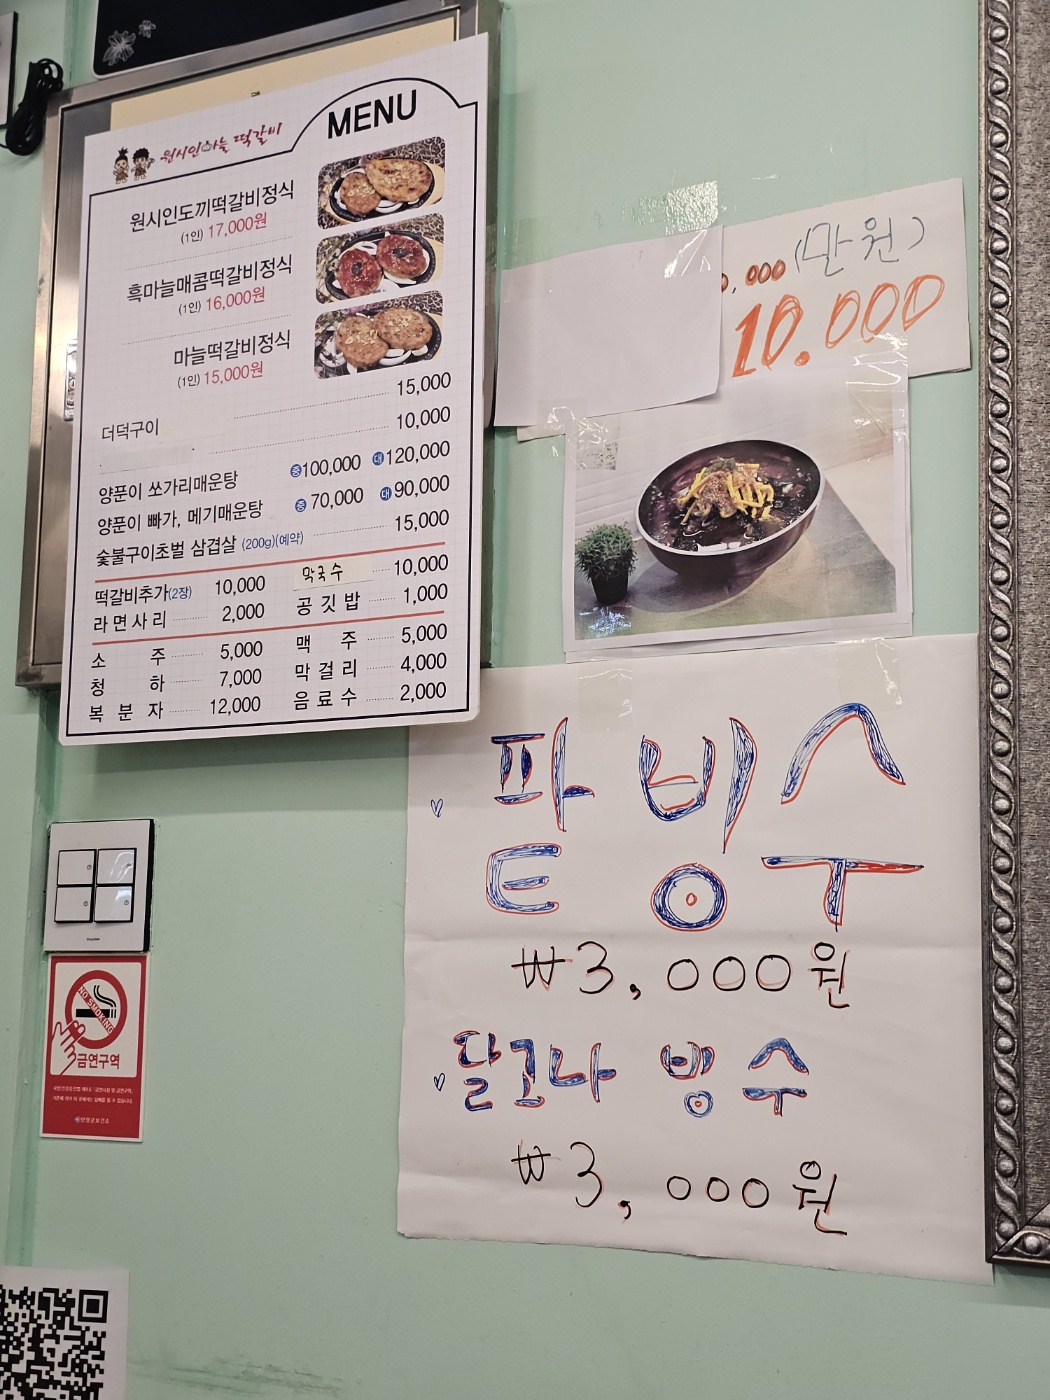 원시인마늘 떡갈비
MENU
원시인도끼떡갈비정식
(1인) 17,000원
흑마늘매콤떡갈비정식
(1인) 16,000원
마늘떡갈비정식
(1인) 15,000원
15,000
더덕구이 10,000
양푼이 쏘가리매운탕 중100,000 대120,000
양푼이 빠가, 메기매운탕 중 70,000 대 90,000
숯불구이초벌 삼겹살 (200g)(예약) 15,000
떡갈비추가(2장) 10,000 막국수 10,000
라면사리 2,000 공깃밥 1,000
소주 5,000 맥주 5,000
청하 7,000 막걸리 4,000
복분자 12,000 음료수 2,000
,000 (만원)
10.000
팥빙수
₩3,000원
달고나 빙수
₩3,000원
NO SMOKING
금연구역